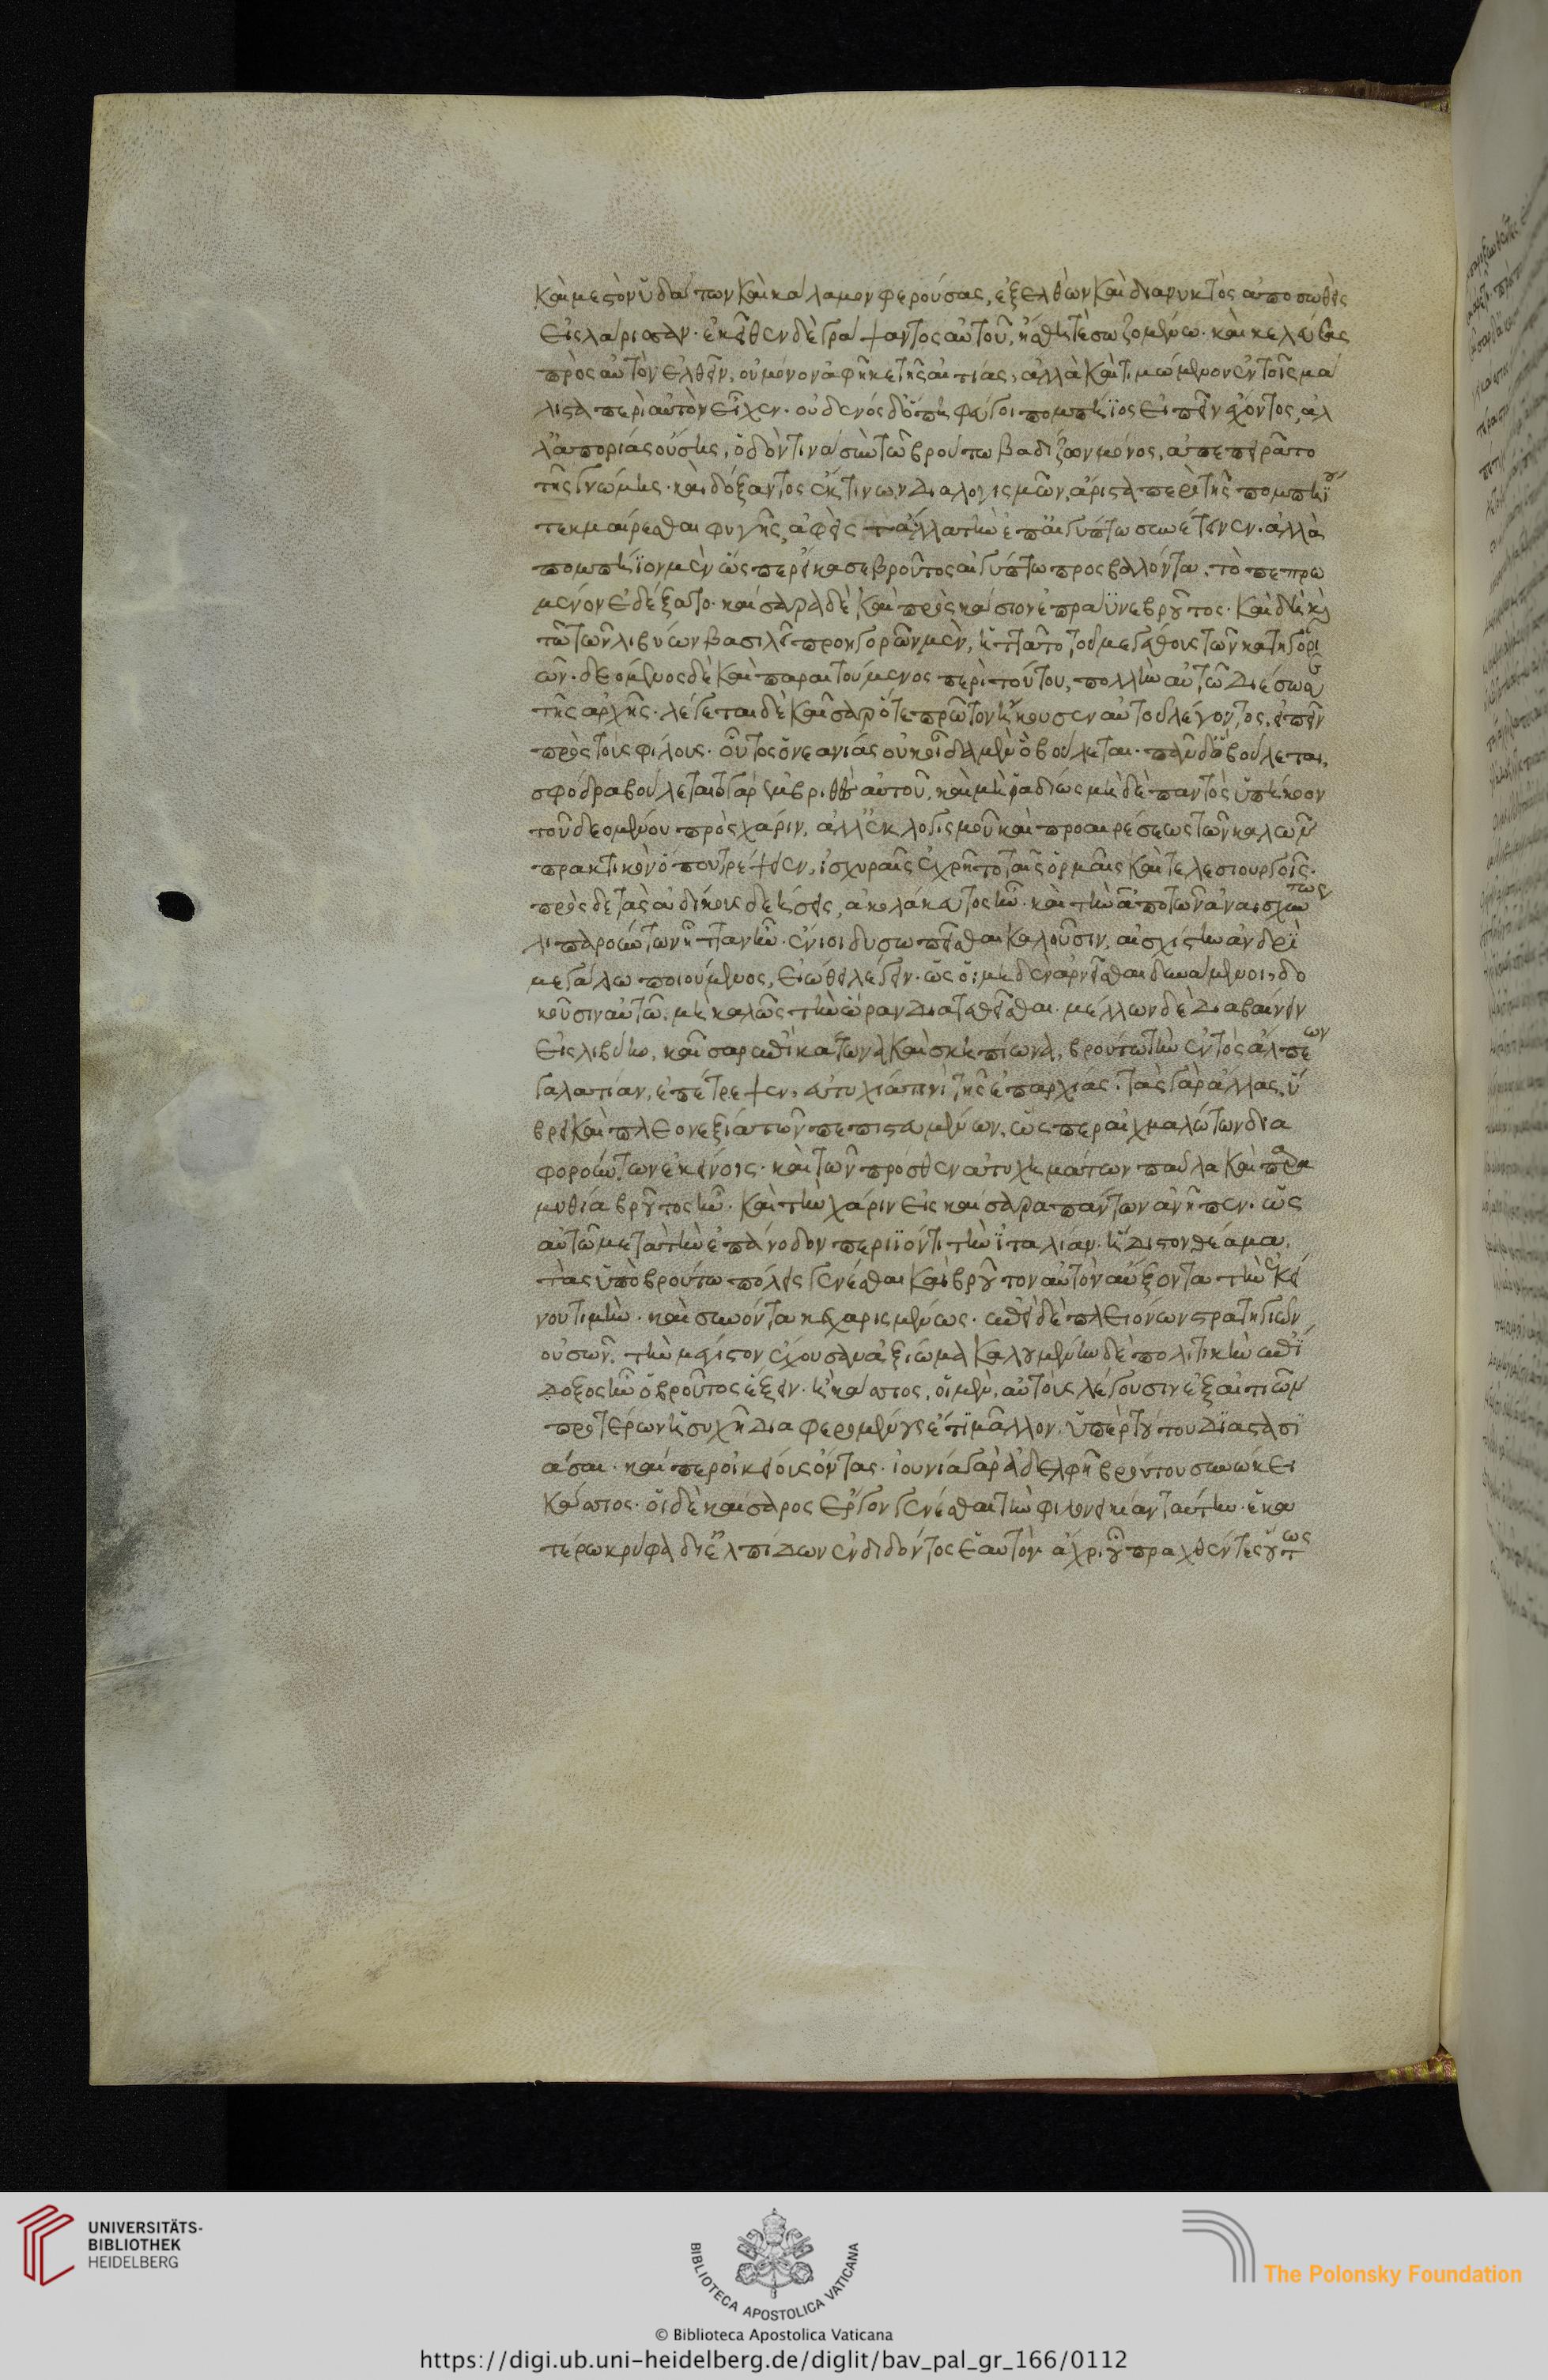 καὶ μεστὸν ὑδάτων καὶ κάλαμον φερούσας, ἐξελθὼν καὶ διανυκτὸς ἀποσωθεὶς
εἰς λάρισσαν. ἐκεῖθεν δὲ γράψαντος αὐτοῦ, ἥσθη τὲ σωζομένω. καὶ κελεύσας
πρὸς αὐτὸν ἐλθεῖν, οὐ μόνον ἀφῆκε τῆς αἰτίας, ἀλλὰ καὶ τιμώμενον ἐν τοῖς μά
λιστα περὶ αὐτὸν εἶχεν. οὐδενὸς δ' ὅπη φεύγοι πομπήϊος εἰπεῖν ἔχοντος, ἀλ
λ' ἀπορίας οὔσης, ὁδόν τινα σὺν τῶ βρούτω βαδίζων μόνος, ἀπεπειρᾶτο
τῆς γνώμης. καὶ δόξαντος ἔκ τινων διαλογισμῶν, ἄριστα περὶ τῆς πομπηΐου
τεκμαίρεσθαι φυγῆς, ἀφεὶς τἄλλα τὴν ἐπ' αἰγύπτω συνέτεινεν. ἀλλὰ
πομπήϊον μὲν ὥσπερ εἴκασε βροῦτος αἰγύπτω προσβαλλόντα, τὸ πεπρω
μένον ἐδέξατο. καίσαρα δὲ, καὶ πρὸς κάσιον ἐπράϋνε βροῦτος. καὶ δὴ καὶ
τῶ τῶν λιβύων βασιλεῖ προηγορῶν μὲν, ἡττᾶτο τοῦ μεγέθους τῶν κατηγορι
ῶν. δεόμενος δὲ καὶ παραιτούμενος περὶ τούτου, πολλὴν αὐτῶ διέσωσε
τῆς ἀρχῆς. λέγεται δὲ καῖσαρ ὅτε πρῶτον ἤκουσεν αὐτοῦ λέγοντος, εἰπεῖν
πρὸς τοὺς φίλους. οὗτος ὁ νεανίας οὐκ οἶδα μὲν ὃ βούλεται. πᾶν δ' ὃ βούλεται,
σφόδρα βούλεται τὸ γὰρ ἐμβριθὲς αὐτοῦ, καὶ μὴ ῥαδίως μὴ δὲ παντὸς ὑπήκοον
τοῦ δεομένου πρὸς χάριν, ἀλλ' ἐκ λογισμοῦ καὶ προαιρέσεως τῶν καλῶν
πρακτικὸν ὅπου τρέψειεν, ἰσχυραῖς ἐχρῆτο ταῖς ὁρμαῖς καὶ τελεσιουργοῖς.
πρὸς δὲ τὰς ἀδίκους δεήσεις, ἀκολάκευτος ἦν. καὶ τὴν ἀπὸ τῶν ἀναισχύντως
λιπαρούντων ἧτταν ἣν ἔνιοι δυσωπεῖσθαι καλοῦσιν, αἰσχίστην ἀνδρὶ
μεγάλω ποιούμενος, εἰώθει λέγειν. ὡς οἱ μηδὲν ἀρνεῖσθαι δυνάμενοι, δο
κοῦσιν αὐτῶ μὴ καλῶς τὴν ὥραν διατεθεῖσθαι. μέλλων δὲ διαβαίνειν
εἰς λιβύην, καῖσαρ ἐπὶ κάτωνα καὶ σκηπίωνα, βρούτω τὴν ἐντὸς ἄλπεων
γαλατίαν, ἐπέτρεψεν, εὐτυχία τινὶ τῆς ἐπαρχίας. τὰς γὰρ ἄλλας, ὕ
βρει καὶ πλεονεξία τῶν πεπιστευμένων, ὥσπερ αἰχμαλώτων δια
φορούντων ἐκείνοις. καὶ τῶν πρόσθεν ἀτυχημάτων παῦλα καὶ παρα
μυθία βροῦτος ἦν. καὶ τὴν χάριν εἰς καίσαρα πάντων ἀνῆπεν. ὡς
αὐτῶ μετὰ τὴν ἐπάνοδον περιϊόντι τὴν ἰταλίαν. ἥδιστον θέαμα,
τὰς ὑπὸ βρούτω πόλεις γενέσθαι καὶ βροῦτον αὐτὸν αὔξοντα τὴν ἐκεί
νου τιμὴν. καὶ συνόντα κεχαρισμένως. ἐπεὶ δὲ πλειόνων στρατηγιῶν
οὐσῶν. τὴν μέγιστον ἔχουσαν ἀξίωμα καλουμένην δὲ πολιτικὴν ἐπί
δοξος ἦν ὁ βροῦτος ἕξειν. ἢ κάσσιος, οἱ μὲν, αὐτοὺς λέγουσιν ἐξ αἰτιῶν
προτέρων ἡσυχῆ διαφερομένους ἔτι μᾶλλον, ὑπὲρ τούτου διαστασι
άσαι. καίπερ οἰκείους ὄντας. ἰουνία γὰρ ἀδελφῆ βρούτου συνώκει
κάσσιος. οἱ δὲ καίσαρος ἔργον γενέσθαι τὴν φιλονεικίαν ταύτην. ἑκα
τέρω κρύφα δι' ἐλπίδων ἐνδιδόντος ἑαυτὸν ἄχρι οὗ πραχθέντες οὕτως
UNIVERSITÄTS-
BIBLIOTHEK
HEIDELBERG
BIBLIOTECA APOSTOLICA VATICANA
The Polonsky Foundation
© Biblioteca Apostolica Vaticana
https://digi.ub.uni-heidelberg.de/diglit/bav_pal_gr_166/0112